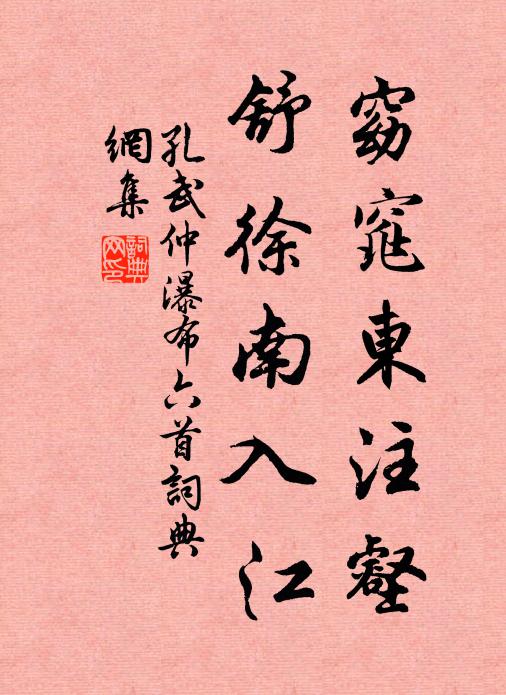 窈窕東注壑
舒徐南入江
孔武仲瀑布六首詞典
網集
詞典
网印